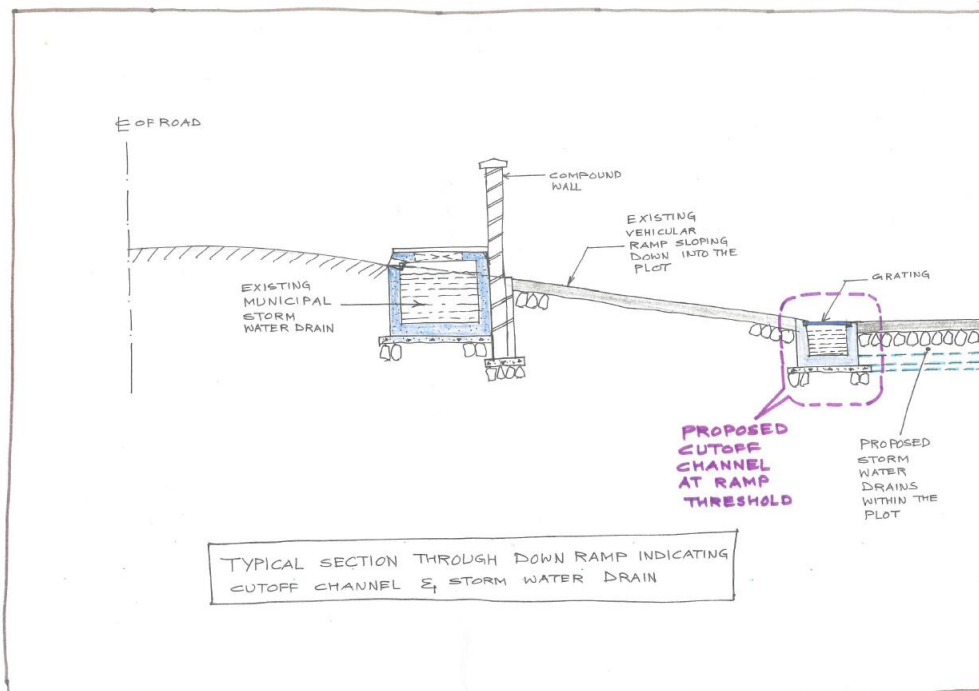 ℄ OF ROAD
COMPOUND
WALL
EXISTING
VEHICULAR
RAMP SLOPING
DOWN INTO THE
PLOT
GRATING
EXISTING
MUNICIPAL
STORM
WATER DRAIN
PROPOSED
CUTOFF
CHANNEL
AT RAMP
THRESHOLD
PROPOSED
STORM
WATER
DRAINS
WITHIN THE
PLOT
TYPICAL SECTION THROUGH DOWN RAMP INDICATING
CUTOFF CHANNEL & STORM WATER DRAIN